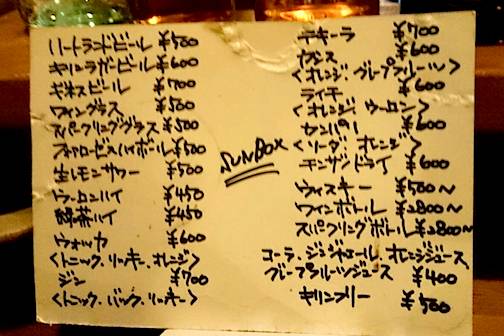 ハートランドビール ¥500
キリンラガービール ¥600
ギネスビール ¥700
ワイングラス ¥500
スパークリンググラス ¥500
フォアローゼスハイボール ¥500
生レモンサワー ¥500
ウーロンハイ ¥450
緑茶ハイ ¥450
ウォッカ ¥600
<トニック、リッキー、オレンジ>
ジン ¥700
<トニック、バック、リッキー>
SUNBOX
テキーラ ¥700
カシス ¥600
<オレンジ、グレープフルーツ>
ライチ ¥600
<オレンジ、ウーロン>
カンパリ ¥600
<ソーダ、オレンジ>
チンザノドライ ¥600
ウィスキー ¥500〜
ワインボトル ¥2800〜
スパークリングボトル ¥2800〜
コーラ、ジンジャエール、オレンジジュース
グレープフルーツジュース ¥400
キリンフリー ¥500